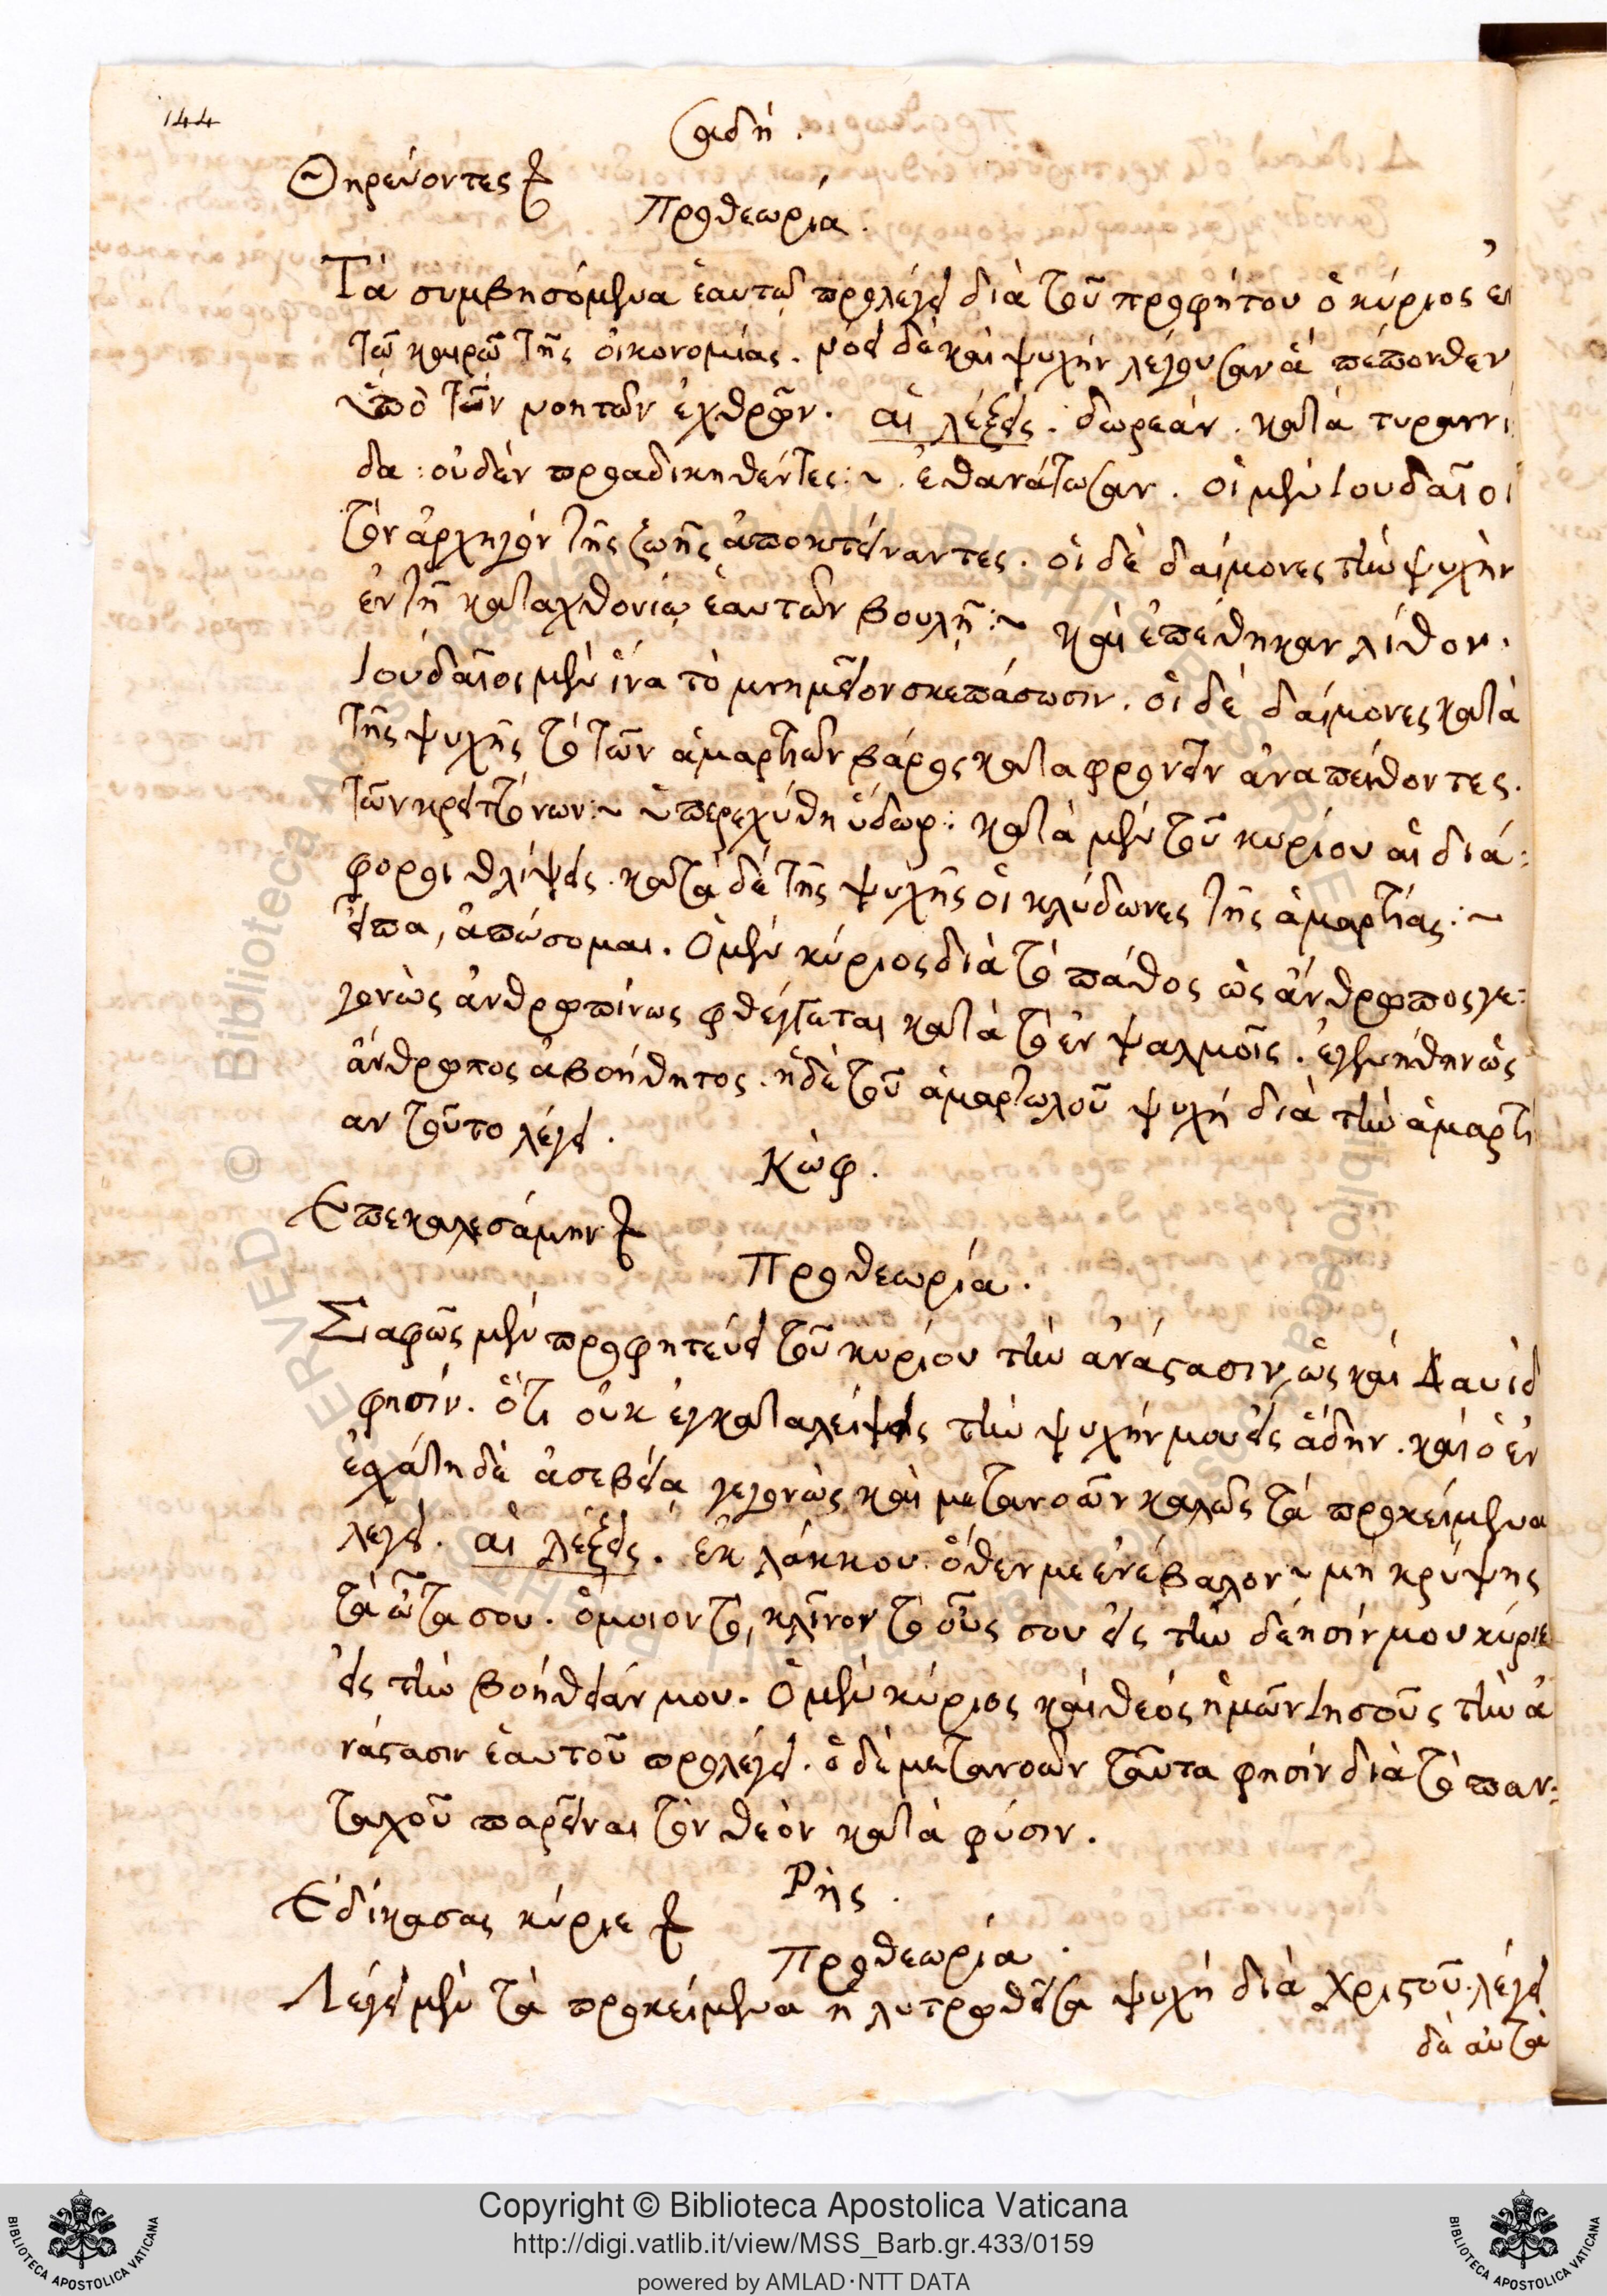 144
Σαιδή.
Θηρεύοντες
Προθεωρία.
Τὰ συμβησόμενα ἑαυτῷ προλέγει διὰ τοῦ προφήτου ὁ κύριος ἐν
τῷ καιρῷ τῆς οἰκονομίας. νόει δὲ καὶ ψυχὴν λέγουσαν ἃ πέπονθεν
ὑπὸ τῶν νοητῶν ἐχθρῶν. αἱ λέξεις. δωρεάν. κατὰ τυραννί
δα: οὐδὲν προαδικηθέντες:~ ἐθανάτωσαν. οἱ μὲν Ιουδαῖοι
τὸν ἀρχηγὸν τῆς ζωῆς ἀποκτείναντες. οἱ δὲ δαίμονες τὴν ψυχὴν
ἐν τῇ καταχθονίῳ ἑαυτῶν βουλῇ:~ καὶ ἐπέθηκαν λίθον.
Ιουδαῖοι μὲν ἵνα τὸ μνημεῖον σκεπάσωσιν. οἱ δὲ δαίμονες κατὰ
τῆς ψυχῆς τὸ τῶν ἁμαρτιῶν βάρος καταφρονεῖν ἀναπείθοντες.
τῶν κρειττόνων:~ ὑπερεχύθη ὕδωρ: κατὰ μὲν τοῦ κυρίου αἱ διά:
φοροι θλίψεις. κατὰ δὲ τῆς ψυχῆς οἱ κλύδωνες τῆς ἁμαρτίας:~
εἶπα, ἀπώσομαι. Ὁ μὲν κύριος διὰ τὸ πάθος ὡς ἄνθρωπος γε:
γονὼς ἀνθρωπίνως φθέγγεται κατὰ τὸ ἐν ψαλμοῖς. ἐγενήθην ὡς
ἄνθρωπος ἀβοήθητος. ἡ δὲ τοῦ ἁμαρτωλοῦ ψυχὴ διὰ τὴν ἁμαρτί
αν τοῦτο λέγει.
Κὼφ.
Επεκαλεσάμην
Προθεωρία.
Σαφῶς μὲν προφητεύει τοῦ κυρίου τὴν ἀνάστασιν, ὡς καὶ Δαυὶδ
φησίν. ὅτι οὐκ ἐγκαταλείψεις τὴν ψυχήν μου εἰς ᾅδην. καὶ ὁ ἐν
ἐσχάτῃ δὲ ἀσεβείᾳ γεγονὼς καὶ μετανοῶν καλῶς τὰ προκείμενα
λέγει. αἱ λέξεις. ἐκ λάκκου. ὅθεν με ἐνέβαλον ~ μὴ κρύψῃς
τὰ ὦτά σου. ὅμοιον τὸ, κλῖνον τὸ οὖς σου εἰς τὴν δέησίν μου κύριε
εἰς τὴν βοήθειάν μου. Ὁ μὲν κύριος καὶ θεὸς ἡμῶν Ιησοῦς τὴν ἀ
νάστασιν ἑαυτοῦ προλέγει. ὁ δὲ μετανοῶν ταῦτα φησὶν διὰ τὸ παν:
ταχοῦ παρεῖναι τὸν θεὸν κατὰ φύσιν.
Ρής.
Εδίκασας κύριε
Προθεωρία.
Λέγει μὲν τὰ προκείμενα ἡ λυτρωθεῖσα ψυχὴ διὰ χριστοῦ. λέγει
δὲ αὐτὰ
Copyright © Biblioteca Apostolica Vaticana
http://digi.vatlib.it/view/MSS_Barb.gr.433/0159
powered by AMLAD·NTT DATA
BIBLIOTECA APOSTOLICA VATICANA
BIBLIOTECA APOSTOLICA VATICANA